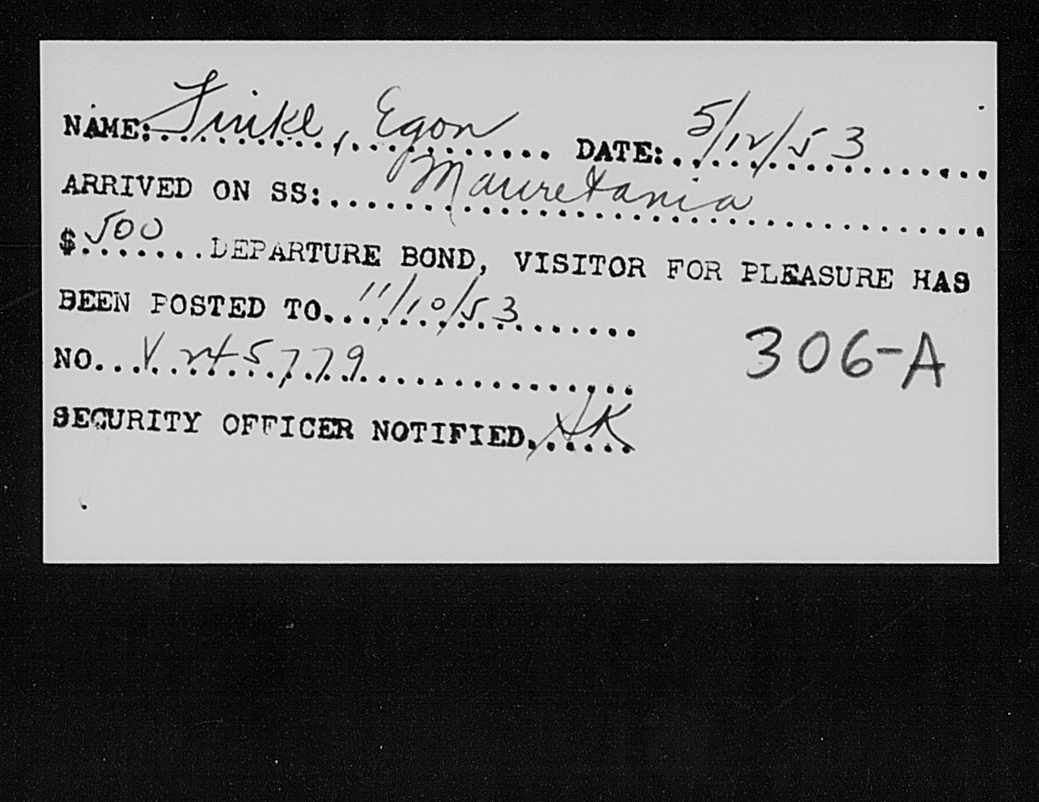 NAME: Finkl, Egon DATE: 5/12/53
ARRIVED ON SS: Mauretania
$ 500 DEPARTURE BOND, VISITOR FOR PLEASURE HAS
BEEN POSTED TO 11/10/53
NO. V 245779
306-A
SECURITY OFFICER NOTIFIED